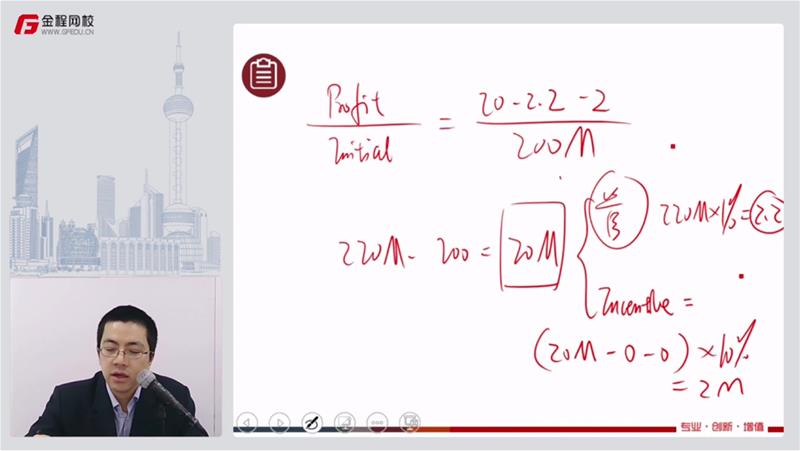 金程网校
WWW.GFEDU.CN
Profit / Initial = 20 - 2.2 - 2 / 200M
220M×1%=2.2
220M - 200 = 20M
Incentive =
(20M - 0 - 0) × 10%
= 2M
专业·创新·增值